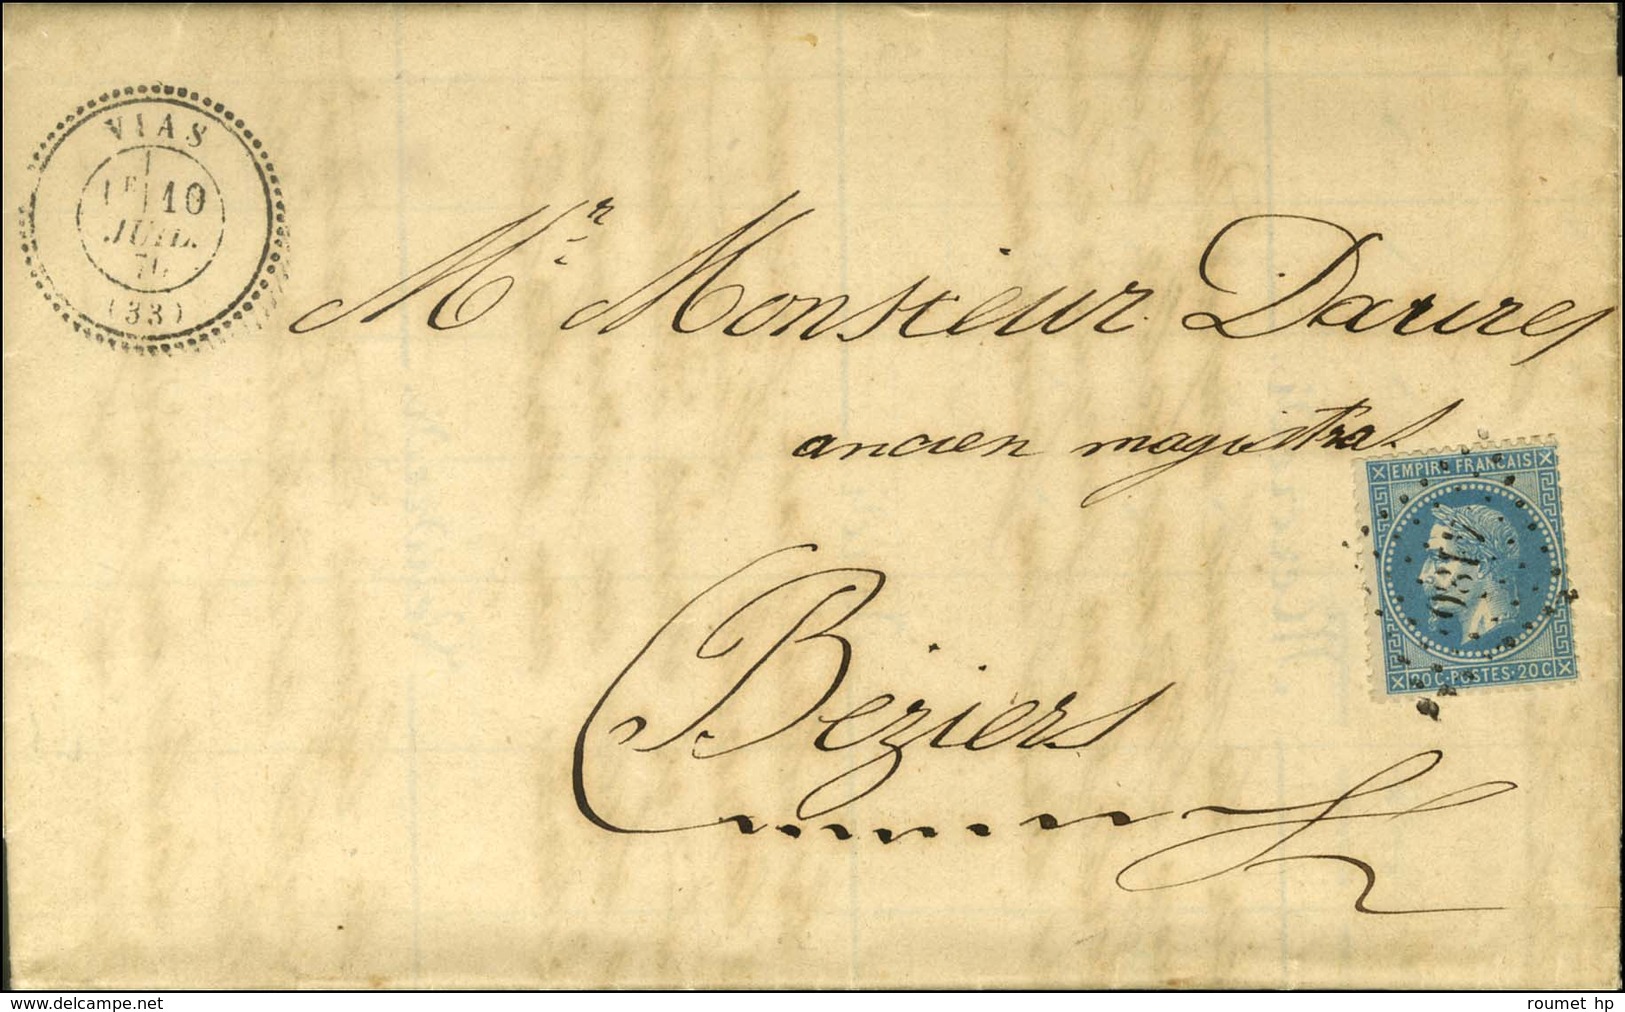 VIAS
1E 10
JUIL.
70
(33)
Mr Monsieur Darures
ancien magistrat
EMPIRE FRANCAIS
4180
20 C · POSTES · 20 C
Béziers
www.delcampe.net
roumet hp